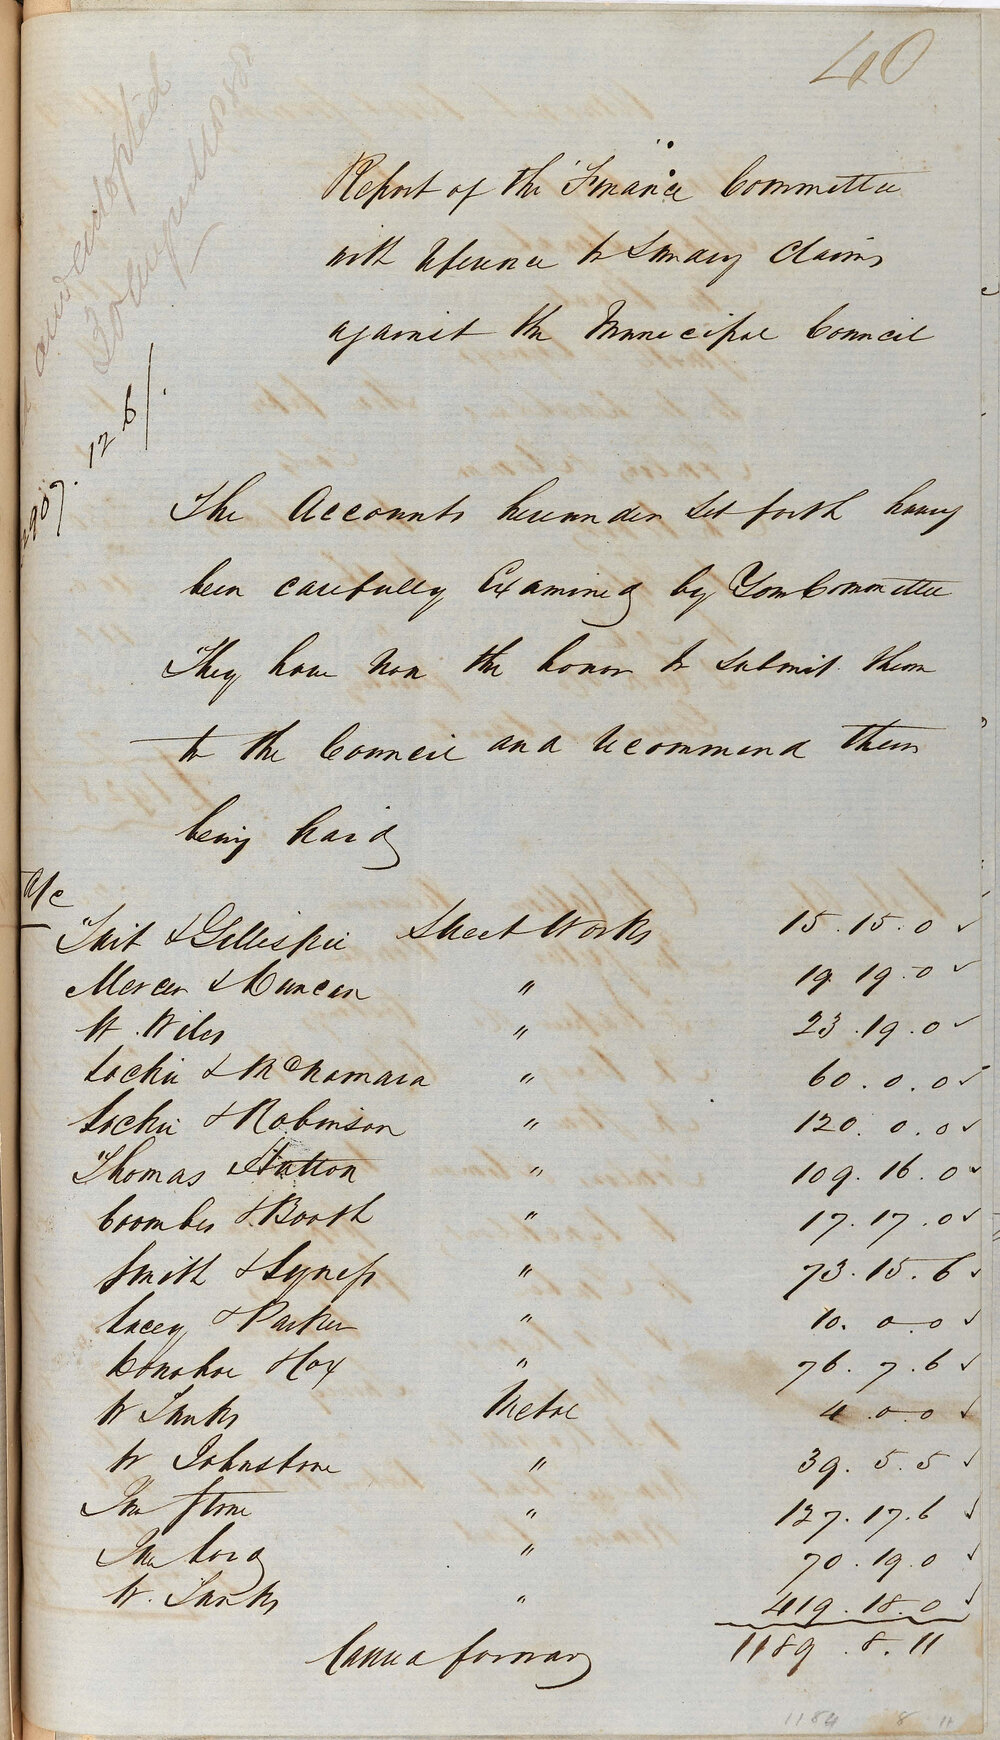 40
and adopted
126/.
Report of the Finance Committee
with reference to Sundry Claims
against the Municipal Council
The Accounts hereunder set forth having
been carefully Examined by Your Committee
They have now the honor to submit them
to the Council and recommend them
being paid
A/c
Tait & Gillespie Street Works 15.15.0 ✓
Mercer & Duncan " 19 19.0 ✓
W. Wiles " 23.19.0 ✓
Lockie & McNamara " 60.0.0 ✓
Lockie & Robinson " 120.0.0 ✓
Thomas Hutton " 109.16.0 ✓
Coombes & Booth " 17.17.0 ✓
Smith & Syness " 73.15.6 ✓
Lacey & Parker " 10.0.0 ✓
Donohoe & Cox " 76.7.6 ✓
W Shanks Metal 4.0.0 ✓
W Johnstone " 39.5.5 ✓
Jno Stone " 127.17.6 ✓
Jno Lord " 70.19.0 ✓
W. Shanks " 419.18.0 ✓
Carried forward 1189.8.11
1184 8 11